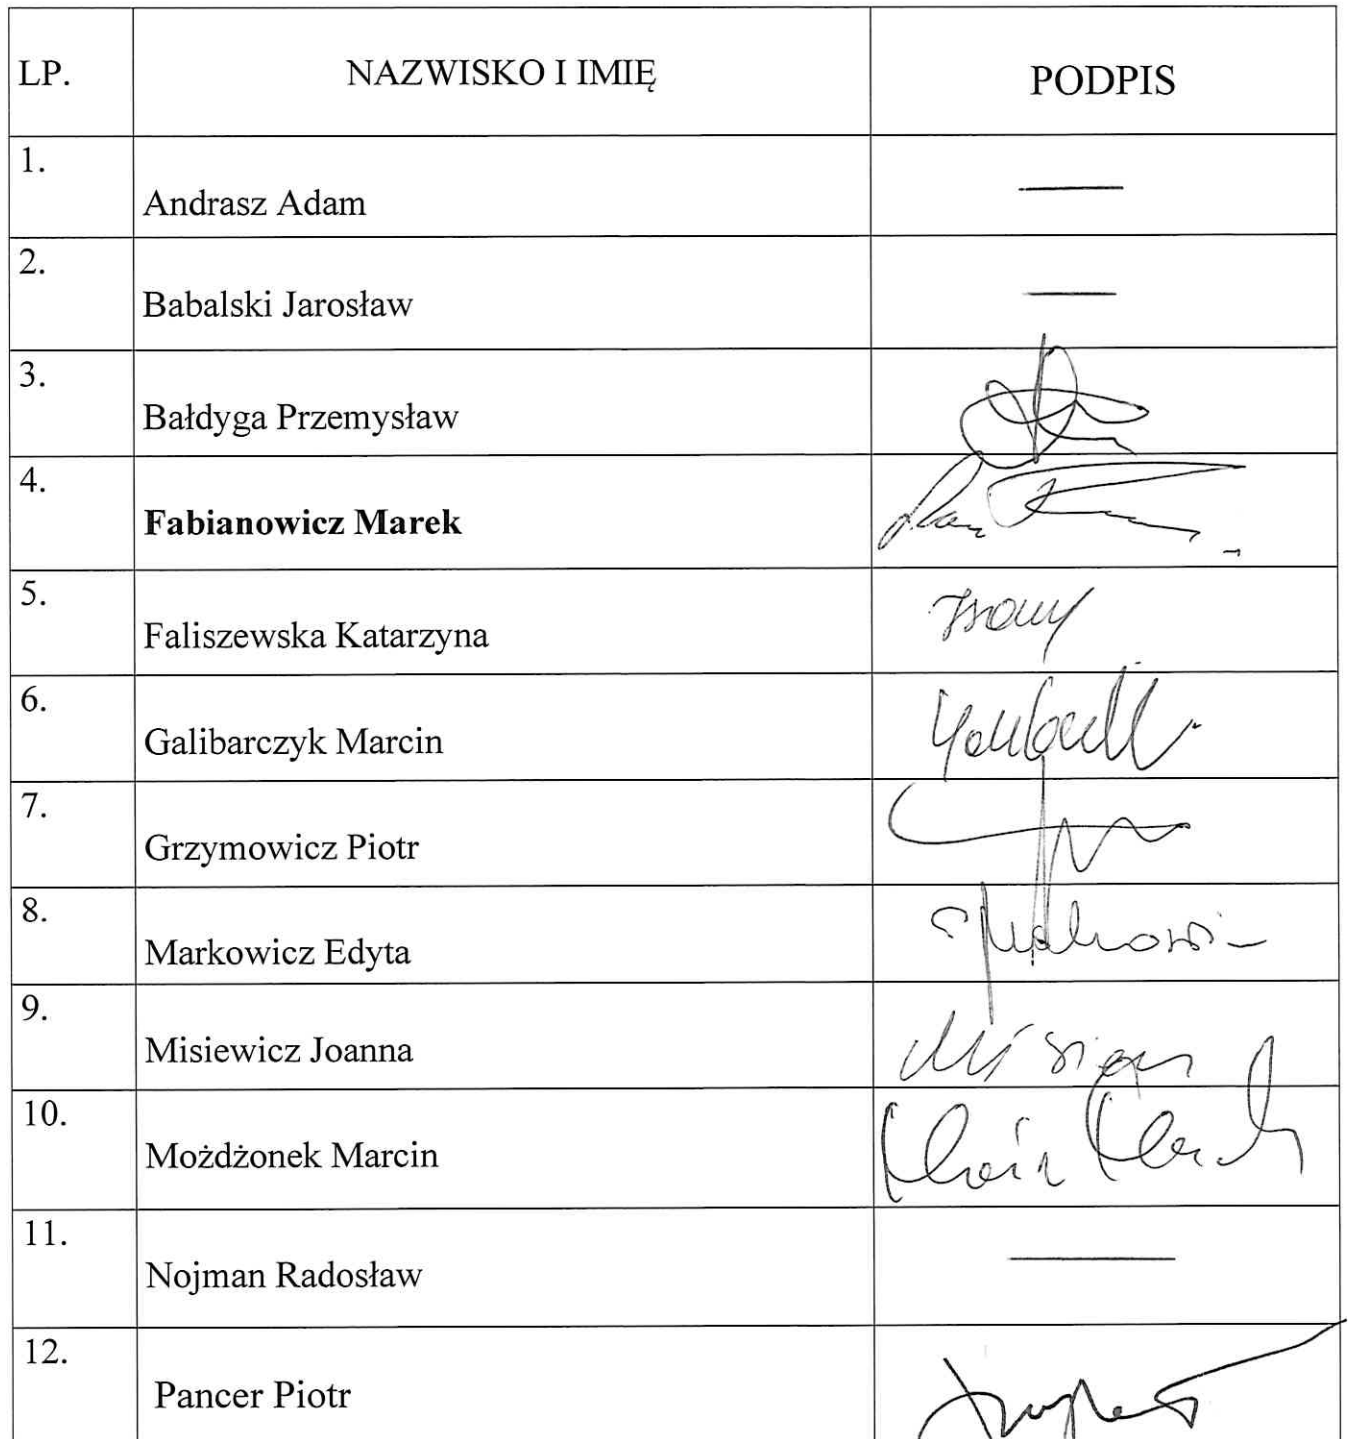 LP. NAZWISKO I IMIĘ PODPIS
1. Andrasz Adam —
2. Babalski Jarosław —
3. Bałdyga Przemysław
4. Fabianowicz Marek
5. Faliszewska Katarzyna
6. Galibarczyk Marcin
7. Grzymowicz Piotr
8. Markowicz Edyta
9. Misiewicz Joanna
10. Możdżonek Marcin
11. Nojman Radosław —
12. Pancer Piotr